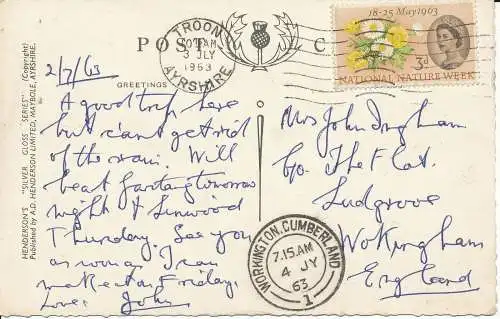 HENDERSON'S "SILVER GLOSS SERIES" (Copyright)
Published by A.D. HENDERSON LIMITED, MAYBOLE, AYRSHIRE.
POST C
GREETINGS
TROON
AM
3 JLY
1963
AYRSHIRE
18-25 May 1963
3d
NATIONAL NATURE WEEK
2/7/63
A good trip here
but can't get rid
of the rain. Will
be at tomorrow
night & Linwood
Thursday. See you
as soon as I can
make it on Friday.
Love. John
Mrs John Ingham
c/o The Flat.
Ludgrove
Wokingham
England
WORKINGTON, CUMBERLAND
7.15 AM
4 JY
63
1